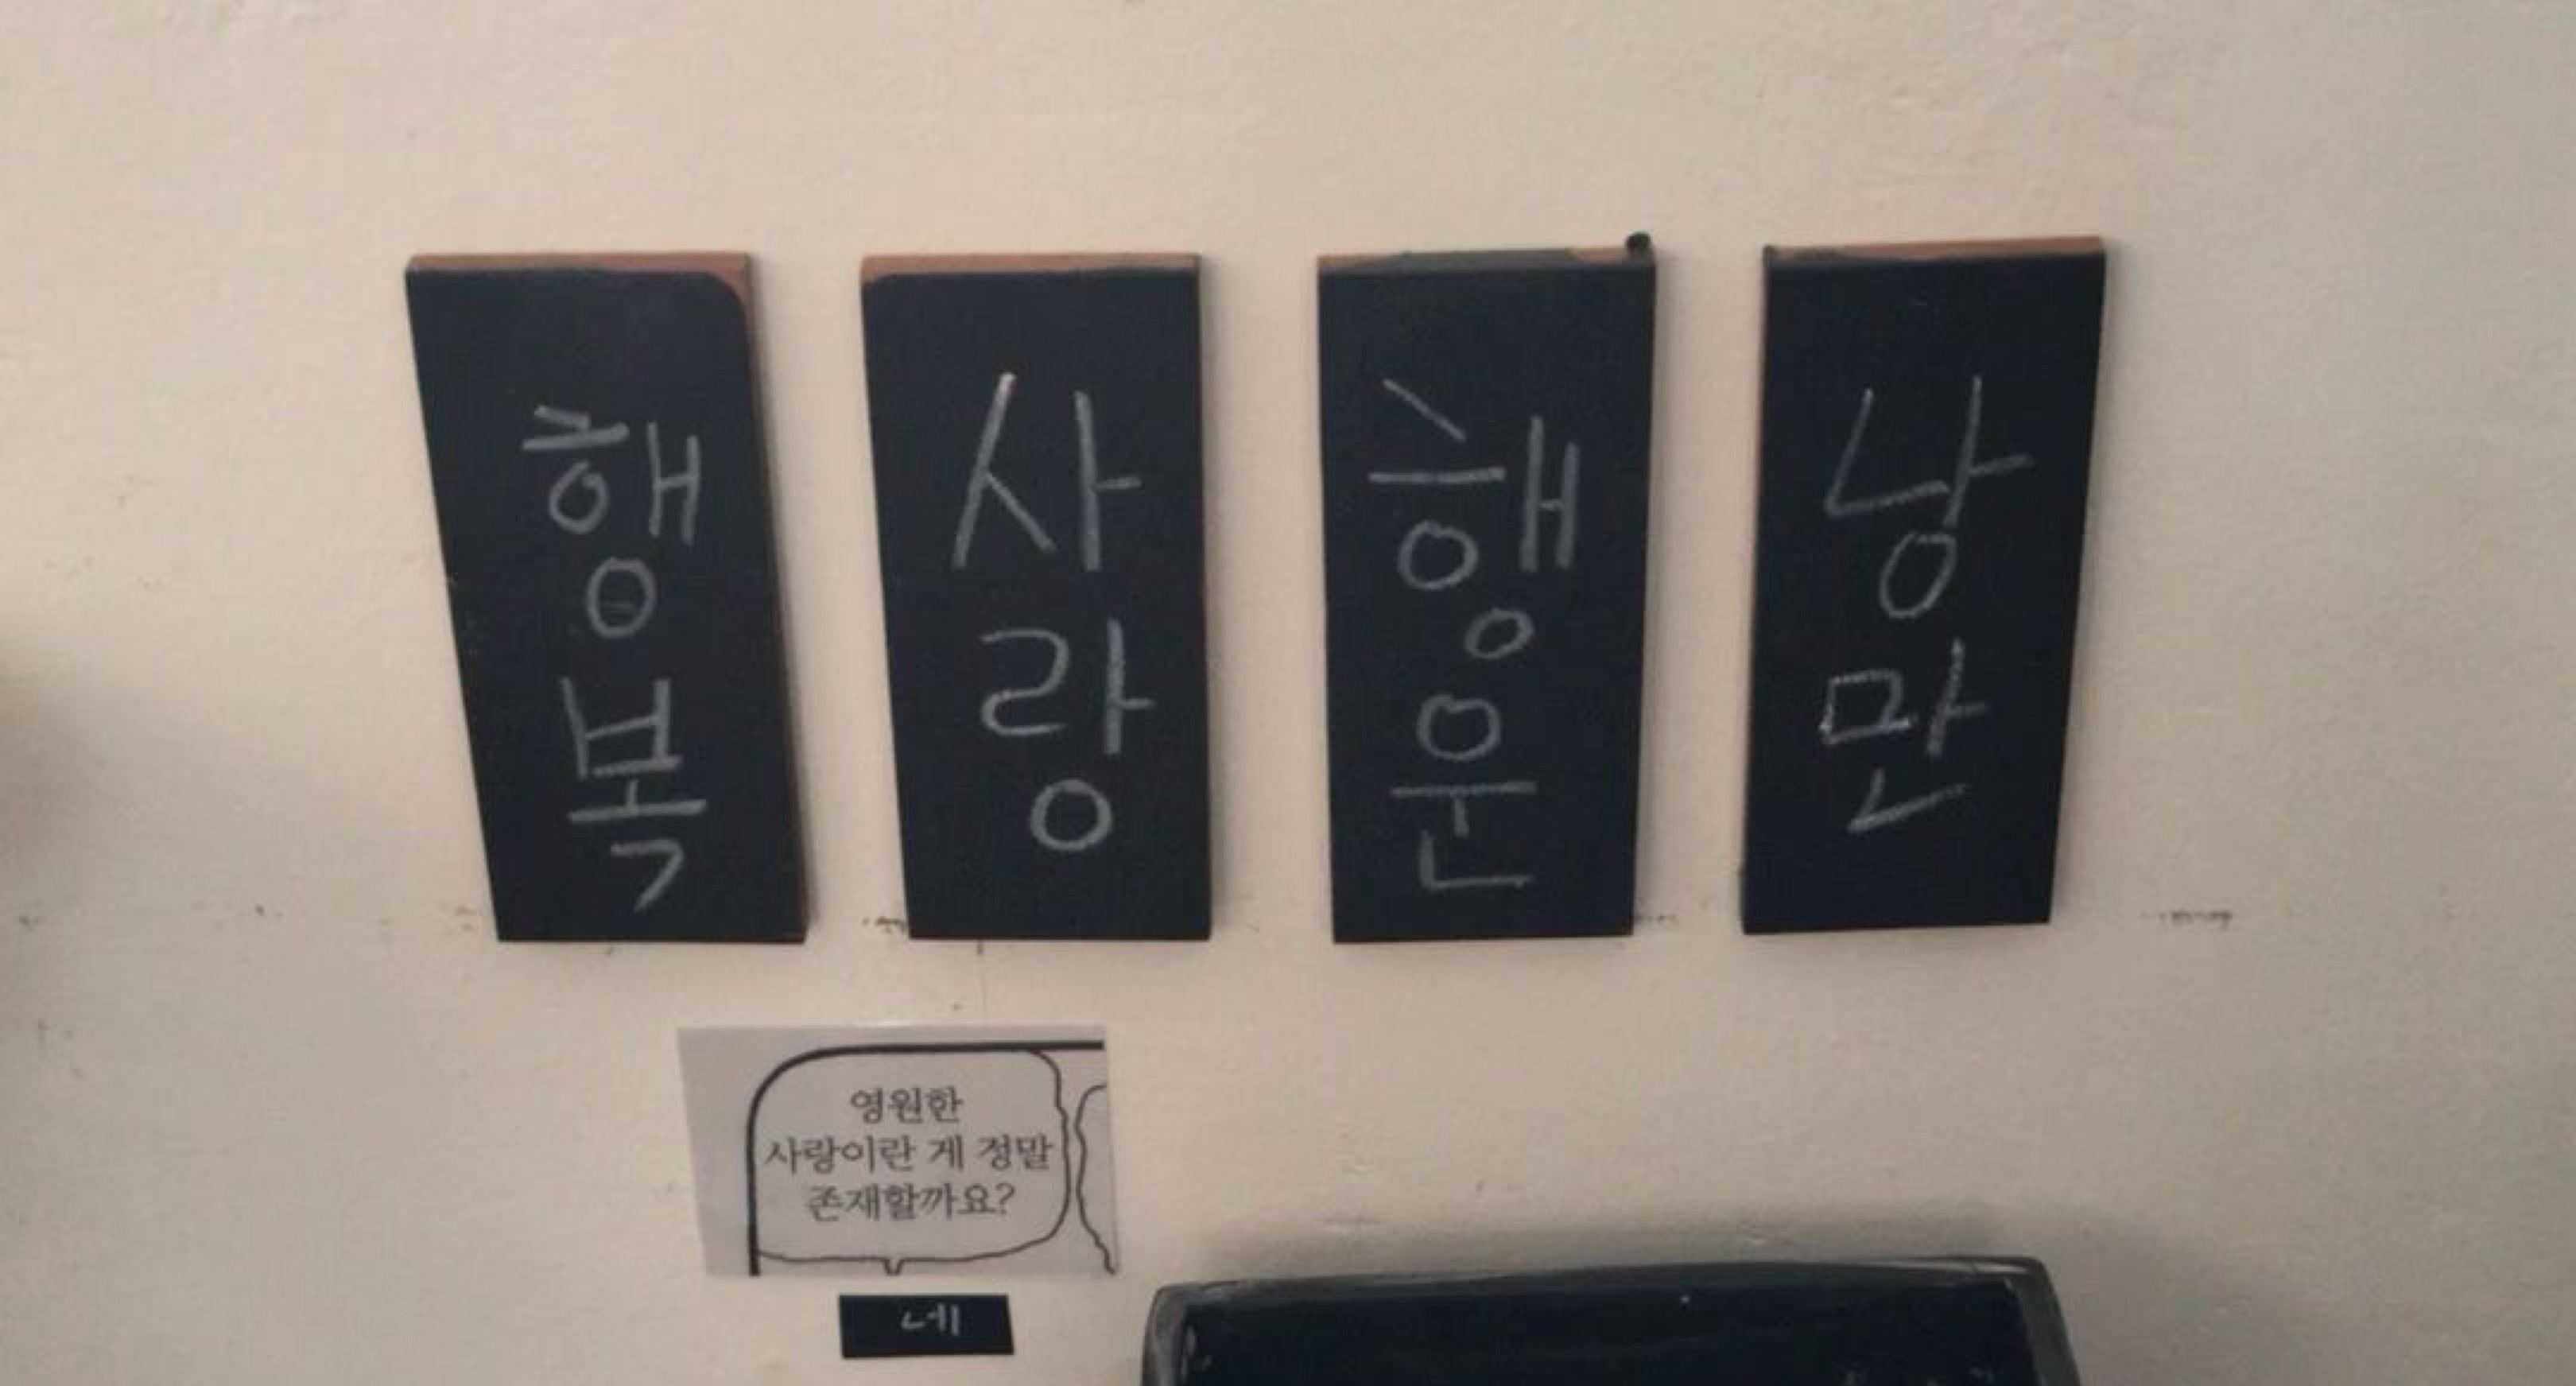 행복
사랑
행운
낭만
영원한
사랑이란 게 정말
존재할까요?
네